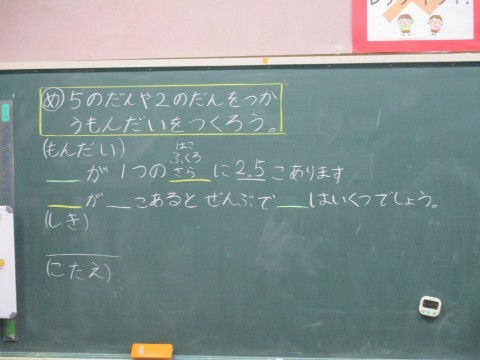 め 5のだんや2のだんをつか
うもんだいをつくろう。
(もんだい)
はこ
ふくろ
__が1つのさらに2.5こあります
__が__こあるとぜんぶで__はいくつでしょう。
(しき)
(こたえ)